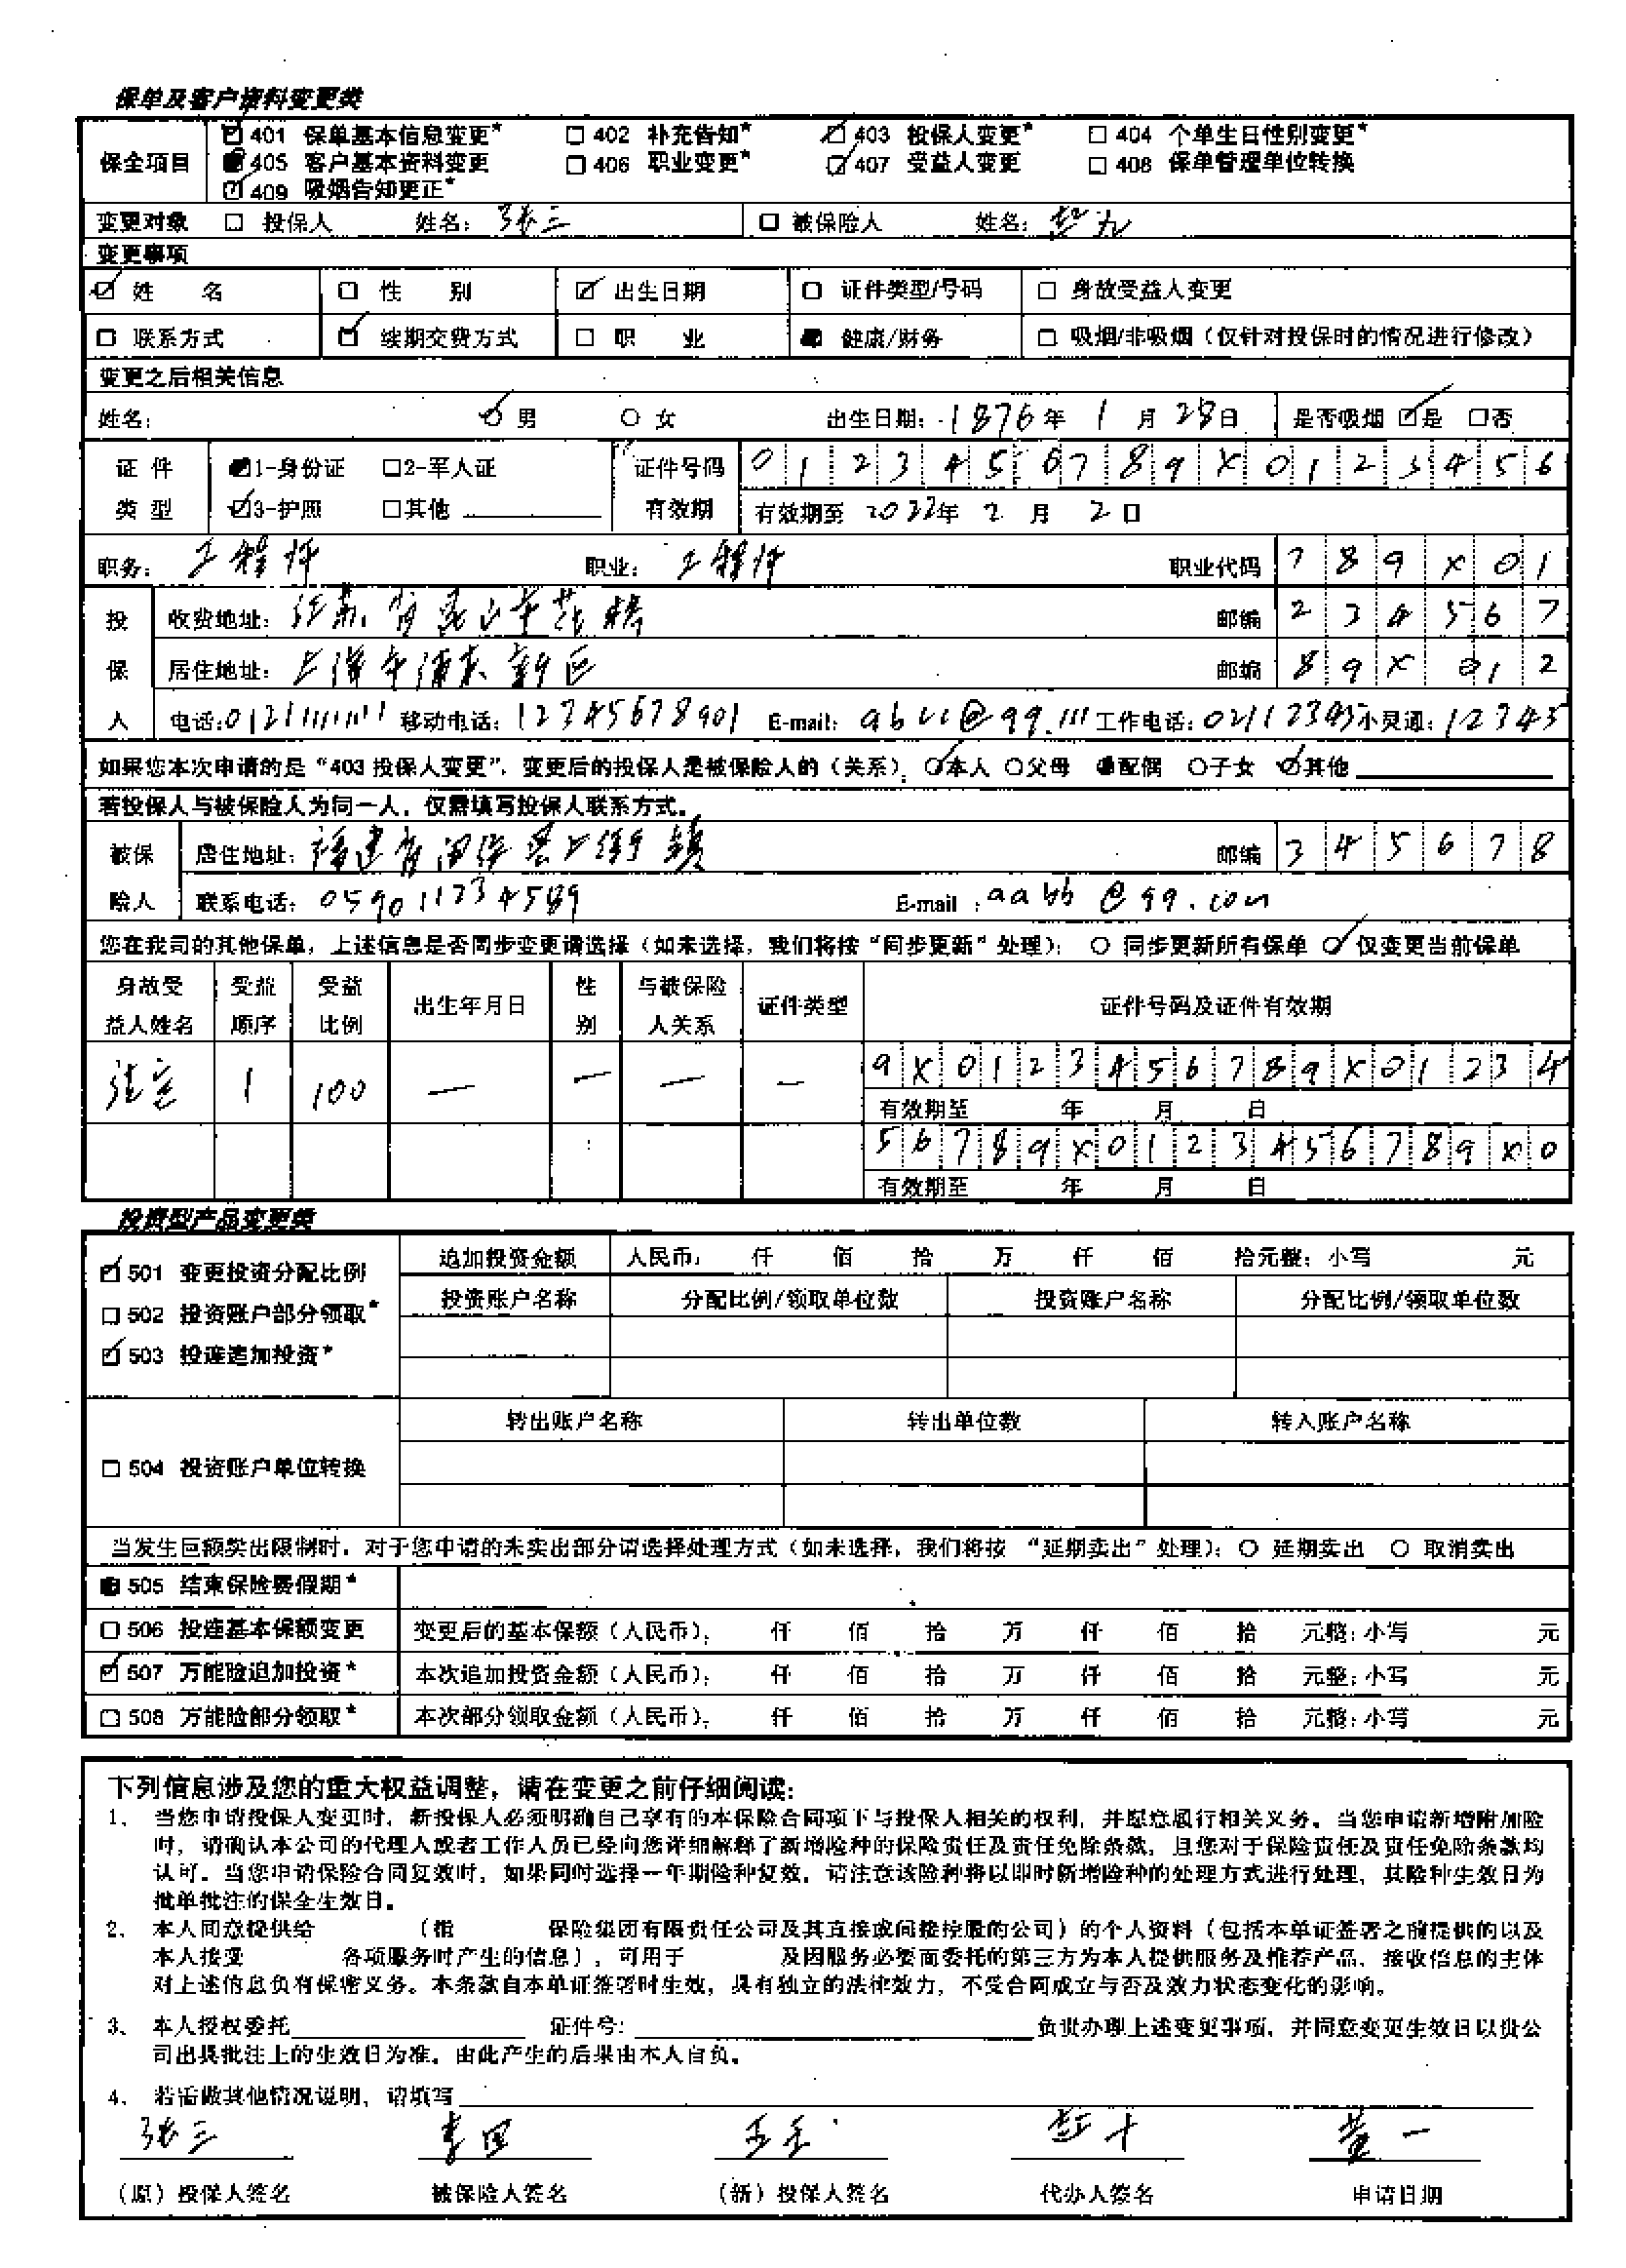 保单及客户资料变更类
保全项目 ☑ 401 保单基本信息变更* ☐ 402 补充告知* ☑ 403 投保人变更* ☐ 404 个单生日性别变更*
☑ 405 客户基本资料变更 ☐ 406 职业变更* ☑ 407 受益人变更 ☐ 408 保单管理单位转换
☑ 409 吸烟告知更正*
变更对象 ☐ 投保人 姓名: 张三 ☐ 被保险人 姓名:
变更事项
☑ 姓 名 ☐ 性 别 ☑ 出生日期 ☐ 证件类型/号码 ☐ 身故受益人变更
☐ 联系方式 ☑ 续期交费方式 ☐ 职 业 ■ 健康/财务 ☐ 吸烟/非吸烟(仅针对投保时的情况进行修改)
变更之后相关信息
姓名: ☑ 男 ○ 女 出生日期: 1876 年 1 月 28 日 是否吸烟 ☑是 ☐否
证件类型 ■1-身份证 ☐2-军人证 证件号码 0123456789X0123456
☑3-护照 ☐其他 有效期 有效期至 2022年 2 月 2 日
职务: 工程师 职业: 工程师 职业代码 789X01
投保人 收费地址: 江苏省昆山市花桥 邮编 234567
居住地址: 上海市浦东新区 邮编 89X012
电话: 移动电话: 12345678901 E-mail: 工作电话: 02112345 小灵通: 12345
如果您本次申请的是“403 投保人变更”,变更后的投保人是被保险人的(关系): ☑本人 ○父母 ●配偶 ○子女 ☑其他
若投保人与被保险人为同一人,仅需填写投保人联系方式。
被保险人 居住地址: 福建省 邮编 345678
联系电话: E-mail: aabb@qq.com
您在我司的其他保单,上述信息是否同步变更请选择(如未选择,我们将按“同步更新”处理): ○ 同步更新所有保单 ☑ 仅变更当前保单
身故受益人姓名 受益顺序 受益比例 出生年月日 性别 与被保险人关系 证件类型 证件号码及证件有效期
1 100 — — — — 9X0123456789X01234
有效期至 年 月 日
56789X0123456789X0
有效期至 年 月 日
投资型产品变更类
☑ 501 变更投资分配比例 追加投资金额 人民币: 仟 佰 拾 万 仟 佰 拾元整: 小写 元
☐ 502 投资账户部分领取* 投资账户名称 分配比例/领取单位数 投资账户名称 分配比例/领取单位数
☑ 503 投连追加投资*
转出账户名称 转出单位数 转入账户名称
☐ 504 投资账户单位转换
当发生巨额卖出限制时,对于您申请的未卖出部分请选择处理方式(如未选择,我们将按 “延期卖出”处理): ○ 延期卖出 ○ 取消卖出
■ 505 结束保险费假期*
☐ 506 投连基本保额变更 变更后的基本保额(人民币): 仟 佰 拾 万 仟 佰 拾 元整: 小写 元
☑ 507 万能险追加投资* 本次追加投资金额(人民币): 仟 佰 拾 万 仟 佰 拾 元整: 小写 元
☐ 508 万能险部分领取* 本次部分领取金额(人民币): 仟 佰 拾 万 仟 佰 拾 元整: 小写 元
下列信息涉及您的重大权益调整,请在变更之前仔细阅读:
1、当您申请投保人变更时,新投保人必须明确自己享有的本保险合同项下与投保人相关的权利,并愿意履行相关义务。当您申请新增附加险
时,请确认本公司的代理人或者工作人员已经向您详细解释了新增险种的保险责任及责任免除条款,且您对于保险责任及责任免除条款均
认可。当您申请保险合同复效时,如果同时选择一年期险种复效,请注意该险种将以即时新增险种的处理方式进行处理,其险种生效日为
批单批注的保全生效日。
2、本人同意提供给 (指 保险集团有限责任公司及其直接或间接控股的公司)的个人资料(包括本单证签署之前提供的以及
本人接受 各项服务时产生的信息),可用于 及因服务必要而委托的第三方为本人提供服务及推荐产品,接收信息的主体
对上述信息负有保密义务。本条款自本单证签署时生效,具有独立的法律效力,不受合同成立与否及效力状态变化的影响。
3、本人授权委托 证件号: 负责办理上述变更事项,并同意变更生效日以贵公
司出具批注上的生效日为准,由此产生的后果由本人自负。
4、若需做其他情况说明,请填写
张三 李四 王五 黄一
(原)投保人签名 被保险人签名 (新)投保人签名 代办人签名 申请日期